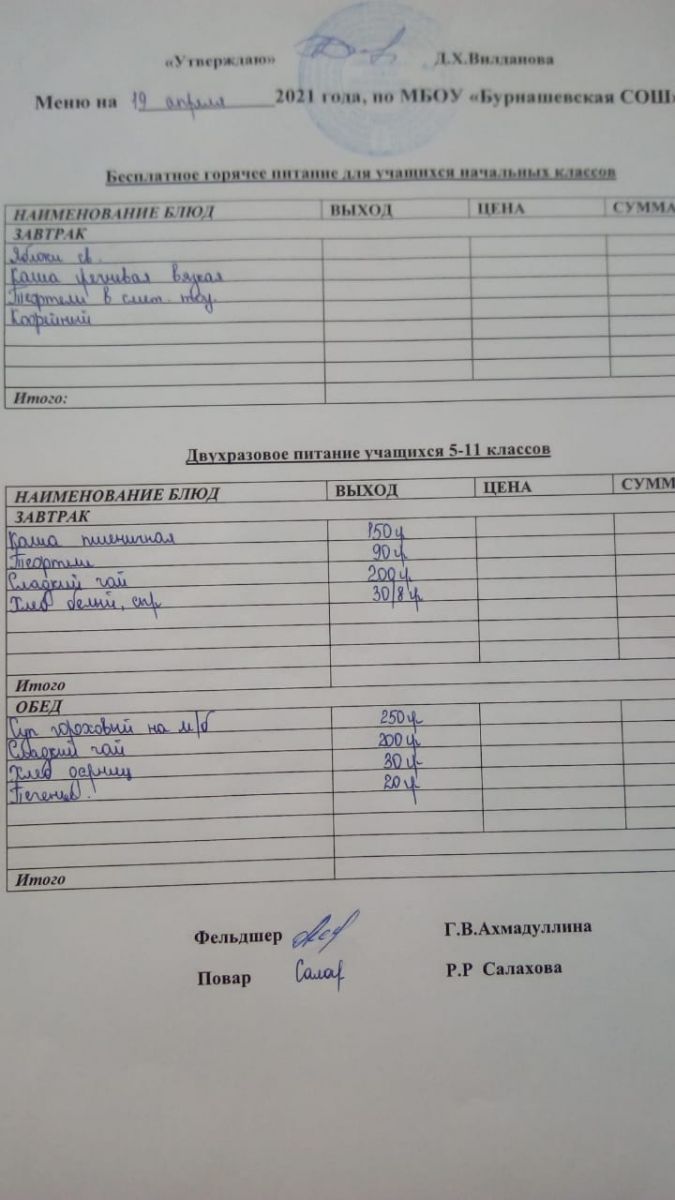 «Утверждаю» Д.Х.Вилданова
Меню на 19 апреля 2021 года, по МБОУ «Бурнашевская СОШ»
Бесплатное горячее питание для учащихся начальных классов
НАИМЕНОВАНИЕ БЛЮД ВЫХОД ЦЕНА СУММА
ЗАВТРАК
Яблоки св.
Каша гречневая вязкая
Тефтели в смет. соу.
Кофейный
Итого:
Двухразовое питание учащихся 5-11 классов
НАИМЕНОВАНИЕ БЛЮД ВЫХОД ЦЕНА СУММ
ЗАВТРАК
Каша пшеничная 150 г
Тефтели 90 г
Сладкий чай 200 г
Хлеб белый, 30/8 г
Итого
ОБЕД
Суп гороховый на м/б 250 г
Сладкий чай 200 г
Хлеб 30 г
Печенье. 20 г
Итого
Фельдшер Г.В.Ахмадуллина
Повар Салах Р.Р Салахова